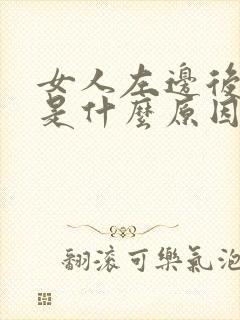 女人左邊後
是什麼原因
翻滾可樂氣泡